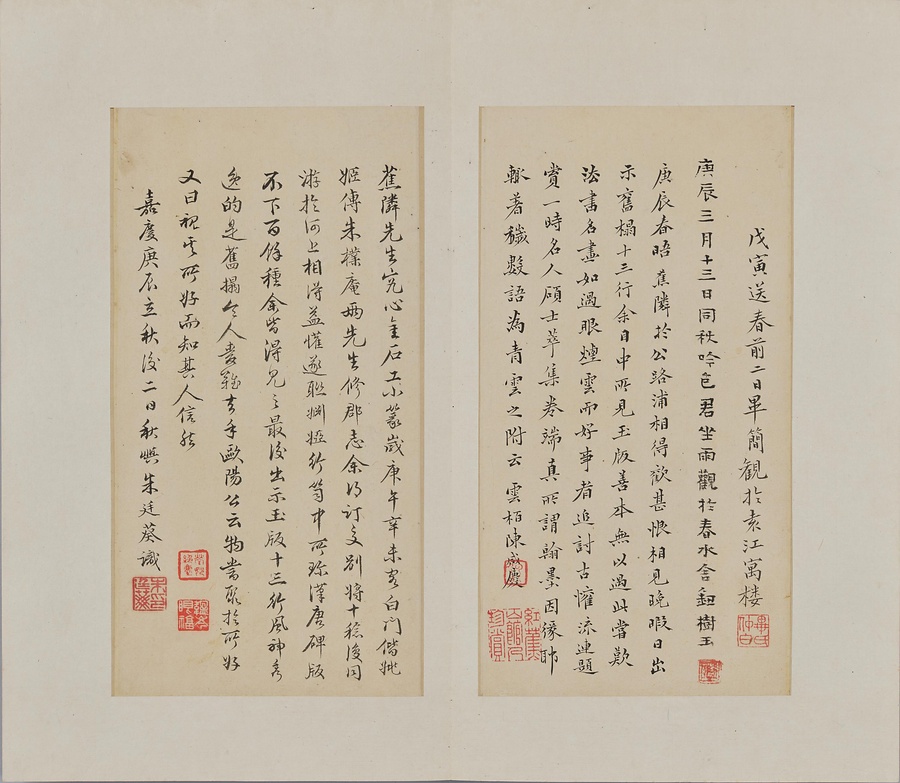 戊寅送春前二日畢簡觀於袁江寓樓
庚辰三月十三日同秋吟包君坐雨觀於春水舍鈕樹玉
庚辰春晤蕉隣於公路浦相得歡甚恨相見晚暇日出
示舊榻十三行余目中所見玉版善本無以過此嘗歎
法書名畫如過眼煙雲而好事者追討古懽流連題
賞一時名人碩士萃集卷端真所謂翰墨因緣耶
輒著穢數語為青雲之附云雲栢陳咸慶
蕉隣先生究心金石工小篆歲庚午辛未客白門偕姚
姬傳朱樸庵兩先生修郡志余得訂交別將十稔後同
游於河上相得益懽遂聯婣婭行笥中所弆漢唐碑版
不下百餘種余皆得見之最後出示玉版十三行風神秀
逸的是舊搨令人愛難去手歐陽公云物嘗聚於所好
又曰視其所好而知其人信然
嘉慶庚辰立秋後二日秋與朱廷葵識